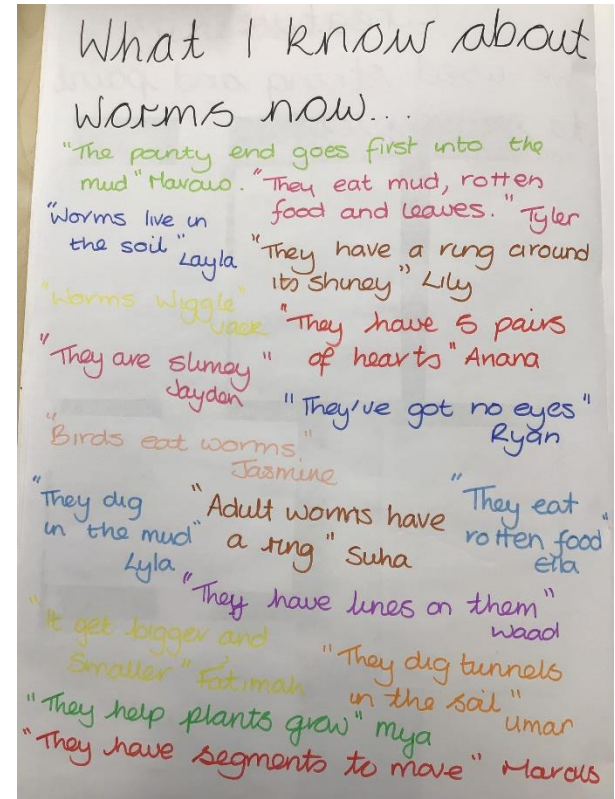 What I know about
worms now...
"The pointy end goes first into the
mud" Marcus. "They eat mud, rotten
food and leaves." Tyler
"Worms live in
the soil" Layla
"They have a ring around
its shiney" Lily
"Worms wiggle"
Jack
"They have 5 pairs
of hearts" Anana
"They are slimey"
Jayden
"They've got no eyes"
Ryan
"Birds eat worms"
Jasmine
"They dig
in the mud"
Lyla
"Adult worms have
a ring" Suha
"They eat
rotten food"
Ella
"They have lines on them"
Waad
"It get bigger and
smaller" Fatimah
"They dig tunnels
in the soil"
Umar
"They help plants grow" Mya
"They have segments to move" Marcus